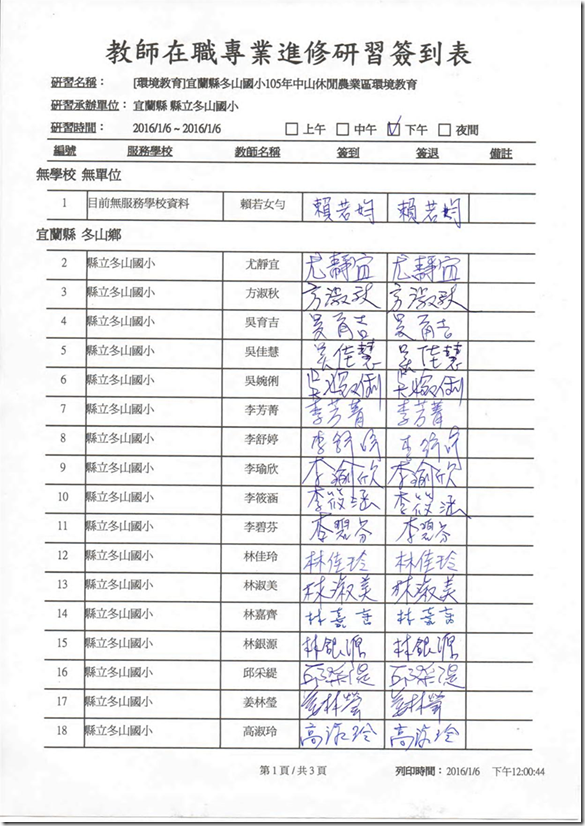 教師在職專業進修研習簽到表
研習名稱： [環境教育]宜蘭縣冬山國小105年中山休閒農業區環境教育
研習承辦單位： 宜蘭縣 縣立冬山國小
研習時間： 2016/1/6 ~ 2016/1/6 □ 上午 □ 中午 ☑ 下午 □ 夜間
編號 服務學校 教師名稱 簽到 簽退 備註
無學校 無單位
1 目前無服務學校資料 賴若女勻 賴若均 賴若均
宜蘭縣 冬山鄉
2 縣立冬山國小 尤靜宜 尤靜宜 尤靜宜
3 縣立冬山國小 方淑秋 方淑秋 方淑秋
4 縣立冬山國小 吳育吉 吳育吉 吳育吉
5 縣立冬山國小 吳佳慧 吳佳慧 吳佳慧
6 縣立冬山國小 吳婉俐 吳婉俐 吳婉俐
7 縣立冬山國小 李芳菁 李芳菁 李芳菁
8 縣立冬山國小 李舒婷 李舒婷 李舒婷
9 縣立冬山國小 李瑜欣 李瑜欣 李瑜欣
10 縣立冬山國小 李筱涵 李筱涵 李筱涵
11 縣立冬山國小 李碧芬 李碧芬 李碧芬
12 縣立冬山國小 林佳玲 林佳玲 林佳玲
13 縣立冬山國小 林淑美 林淑美 林淑美
14 縣立冬山國小 林嘉齊 林嘉齊 林嘉齊
15 縣立冬山國小 林銀源 林銀源 林銀源
16 縣立冬山國小 邱采緹 邱采緹 邱采緹
17 縣立冬山國小 姜林瑩 姜林瑩 姜林瑩
18 縣立冬山國小 高淑玲 高淑玲 高淑玲
第 1 頁 / 共 3 頁 列印時間：2016/1/6 下午12:00:44